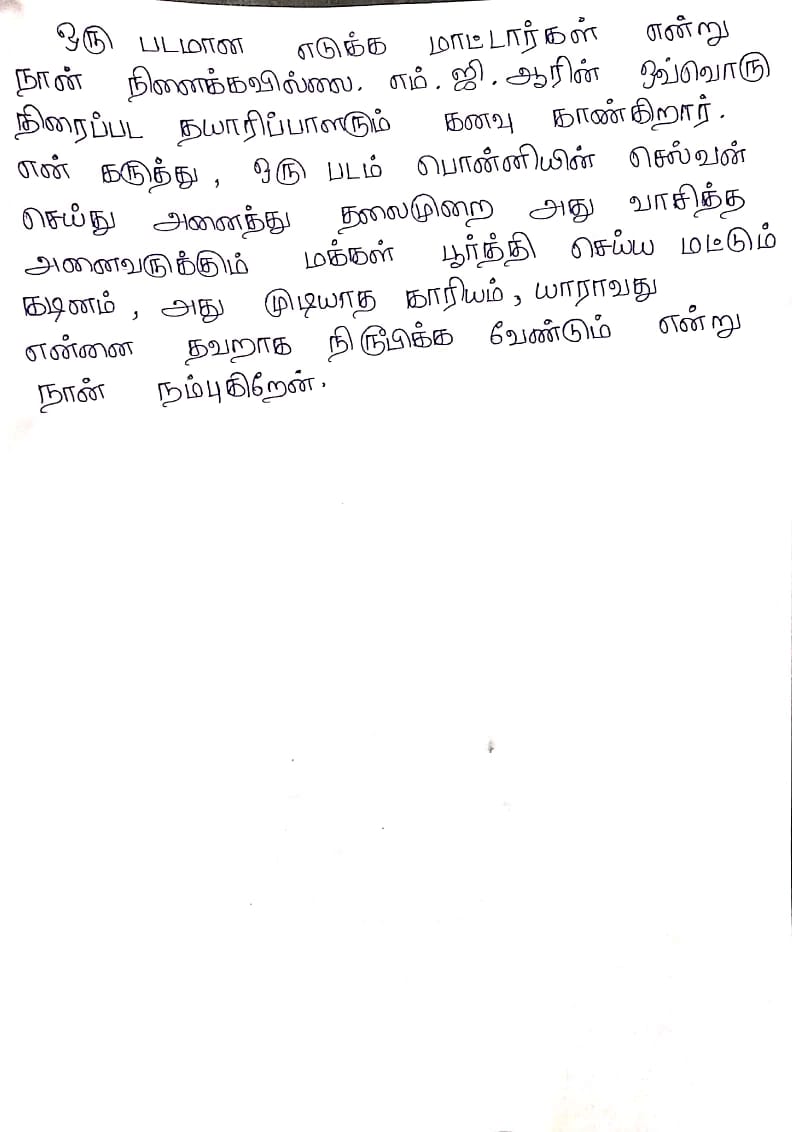 ஒரு படமான எடுக்க மாட்டார்கள் என்று
நான் நினைக்கவில்லை. எம். ஜி. ஆரின் ஒவ்வொரு
திரைப்பட தயாரிப்பாளரும் கனவு காண்கிறார்.
என் கருத்து, ஒரு படம் பொன்னியின் செல்வன்
செய்து அனைத்து தலைமுறை அது வாசித்த
அனைவருக்கும் மக்கள் பூர்த்தி செய்ய மட்டும்
கடினம், அது முடியாத காரியம், யாராவது
என்னை தவறாக நிரூபிக்க வேண்டும் என்று
நான் நம்புகிறேன்.